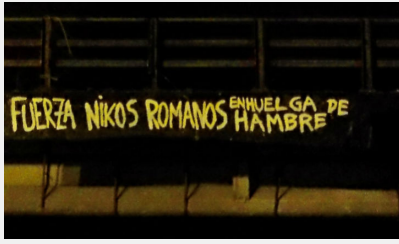 FUERZA NIKOS ROMANOS EN HUELGA DE
HAMBRE